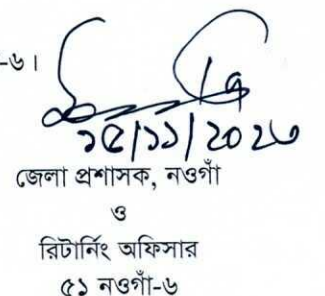 -৬।
১৫/১১/২০২৩
জেলা প্রশাসক, নওগাঁ
ও
রিটার্নিং অফিসার
৫১ নওগাঁ-৬